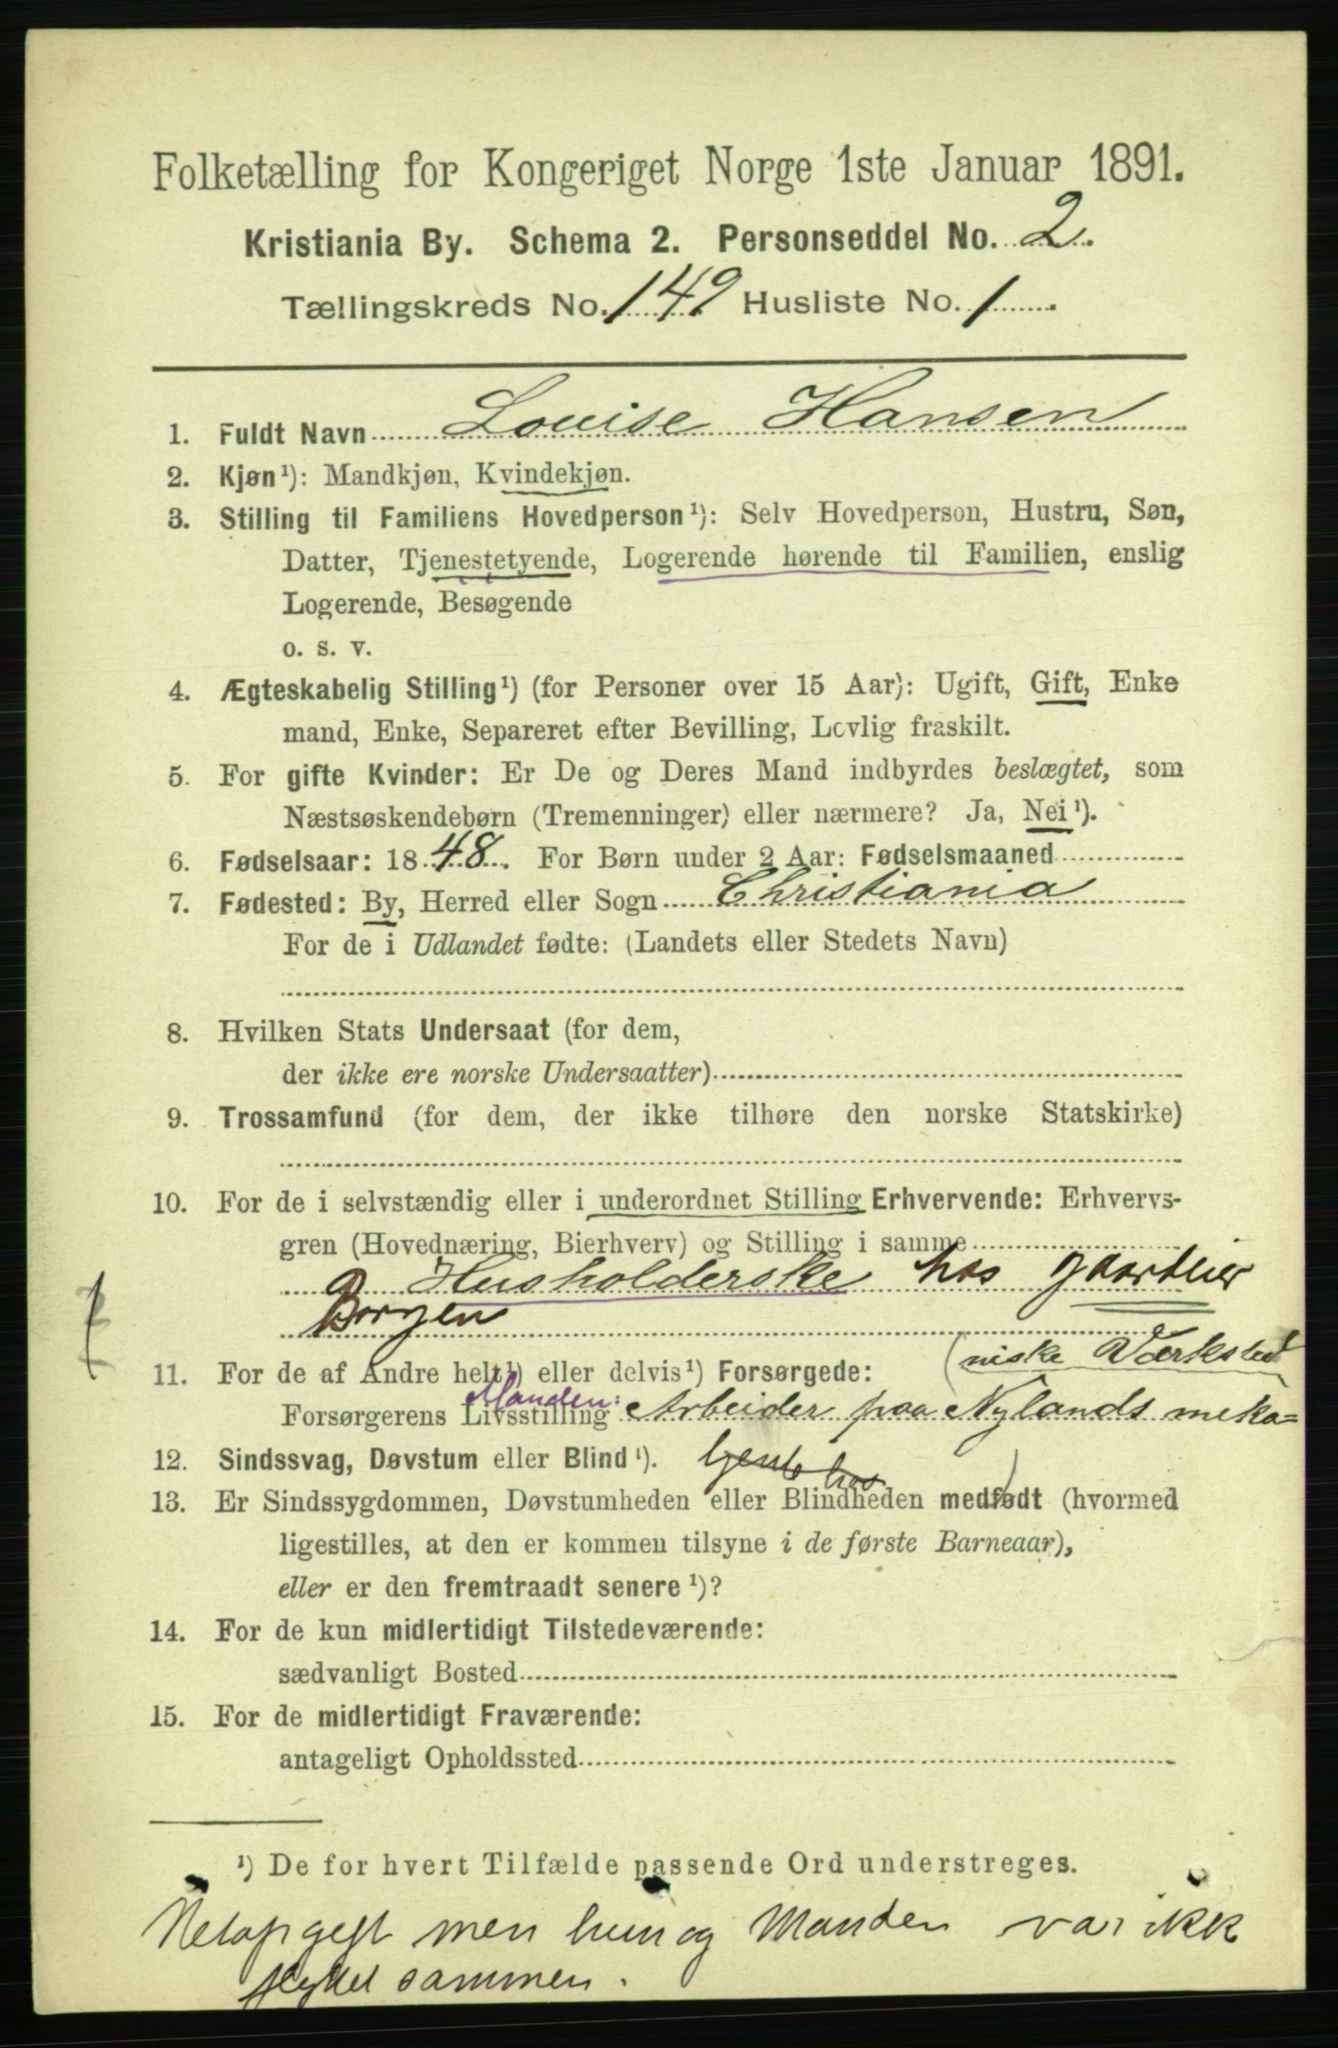 Folketælling for Kongeriget Norge 1ste Januar 1891.
Kristiania By. Schema 2. Personseddel No. 2.
Tællingskreds No. 149 Husliste No. 1
1. Fuldt Navn Louise Hansen
2. Kjøn¹): Mandkjøn, Kvindekjøn.
3. Stilling til Familiens Hovedperson¹): Selv Hovedperson, Hustru, Søn,
Datter, Tjenestetyende, Logerende hørende til Familien, enslig
Logerende, Besøgende
o. s. v.
4. Ægteskabelig Stilling¹) (for Personer over 15 Aar): Ugift, Gift, Enke
mand, Enke, Separeret efter Bevilling, Lovlig fraskilt.
5. For gifte Kvinder: Er De og Deres Mand indbyrdes beslægtet, som
Næstsøskendebørn (Tremenninger) eller nærmere? Ja, Nei¹).
6. Fødselsaar: 1848. For Børn under 2 Aar: Fødselsmaaned
7. Fødested: By, Herred eller Sogn Christiania
For de i Udlandet fødte: (Landets eller Stedets Navn)
8. Hvilken Stats Undersaat (for dem,
der ikke ere norske Undersaatter)
9. Trossamfund (for dem, der ikke tilhøre den norske Statskirke)
10. For de i selvstændig eller i underordnet Stilling Erhvervende: Erhvervs-
gren (Hovednæring, Bierhverv) og Stilling i samme
Husholderske hos gaardeier
Borgen
11. For de af Andre helt¹) eller delvis¹) Forsørgede: (niske Værksted
Manden:
Forsørgerens Livsstilling Arbeider paa Nylands meka=
12. Sindssvag, Døvstum eller Blind¹). tjente hos
13. Er Sindssygdommen, Døvstumheden eller Blindheden medfødt (hvormed
ligestilles, at den er kommen tilsyne i de første Barneaar),
eller er den fremtraadt senere¹)?
14. For de kun midlertidigt Tilstedeværende:
sædvanligt Bosted
15. For de midlertidigt Fraværende:
antageligt Opholdssted
¹) De for hvert Tilfælde passende Ord understreges.
Netop gift men hun og Manden var ikke
flyttet sammen.